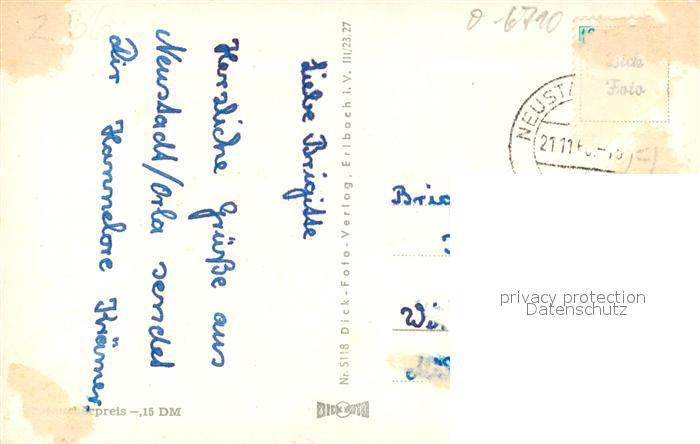 Liebe Brigitte
Herzliche Grüße aus
Neustadt/Orla sendet
Dir Hannelore Krämer.
Nr. 5118 Dick-Foto-Verlag, Erlbach i. V. III/23,27
DICK FOTO
preis -,15 DM
6710
Dick
Foto
NEUST
21.11.6
privacy protection
Datenschutz